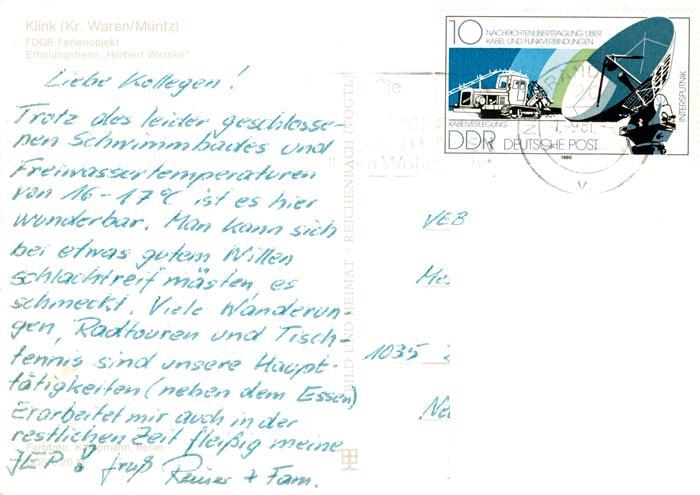 Klink (Kr. Waren/Müritz)
FDGB-Ferienobjekt
Erholungsheim „Herbert Warnke"
Liebe Kollegen!
Trotz des leider geschlosse-
nen Schwimmbades und
Freiwassertemperaturen
von 16-17°C ist es hier
wunderbar. Man kann sich
bei etwas gutem Willen
schlachtreif mästen es
schmeckt. Viele Wanderun
gen, Radtouren und Tisch-
tennis sind unsere Haupt-
tätigkeiten (neben dem Essen)
Erarbeitet mir auch in der
restlichen Zeit fleißig meine
JEP! Gruß Reiner + Fam.
Farbfoto: Berlin
BILD UND HEIMAT · REICHENBACH (VOGTL
10
NACHRICHTENÜBERTRAGUNG ÜBER
KABEL- UND FUNKVERBINDUNGEN
INTERSPUTNIK
KABELVERLEGUNG
DDR DEUTSCHE POST
1980
VEB
1035